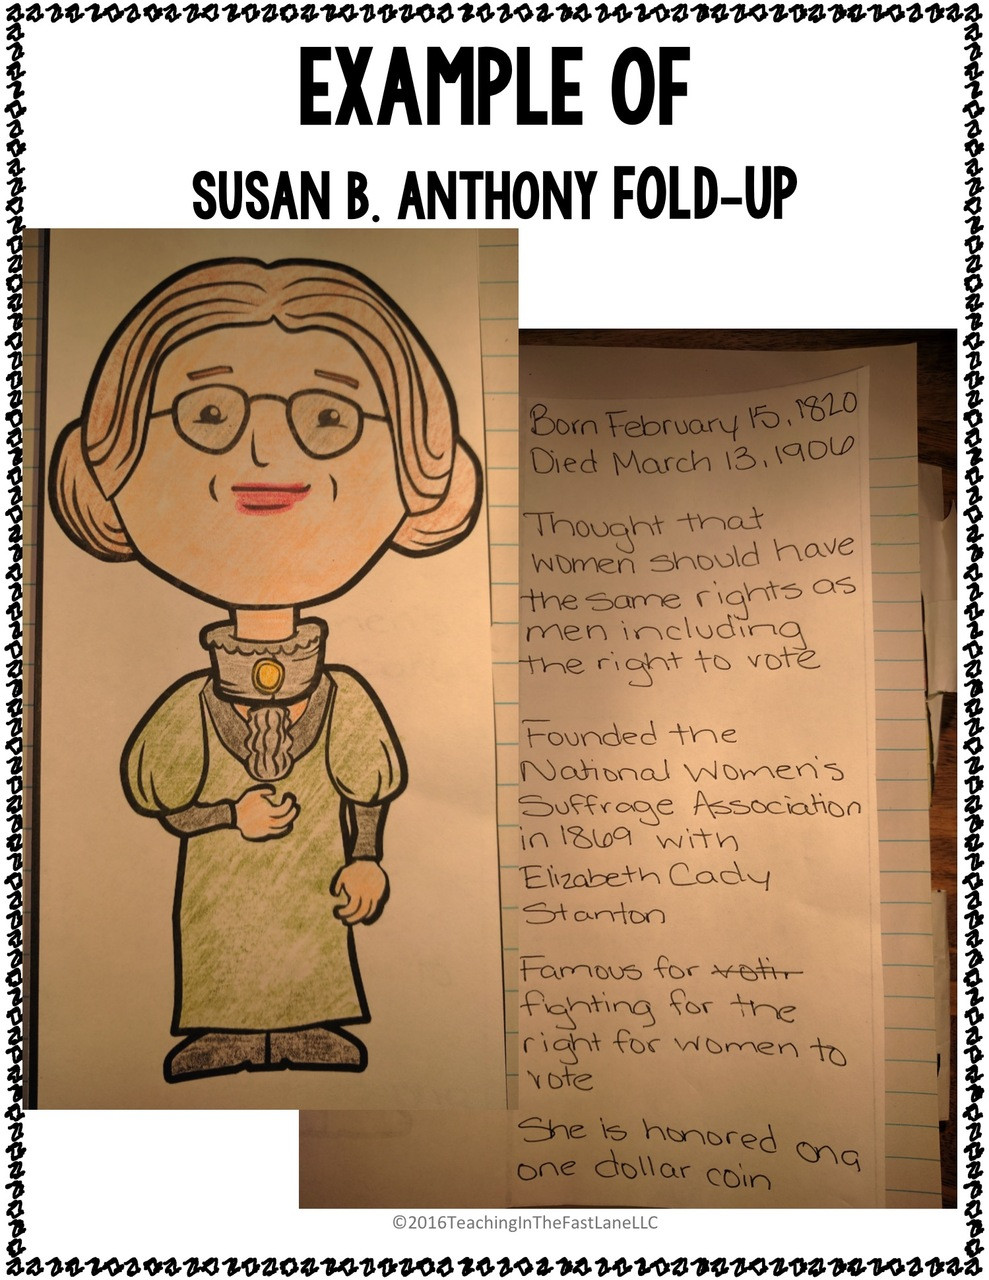 EXAMPLE OF
SUSAN B. ANTHONY FOLD-UP
Born February 15, 1820
Died March 13, 1906
Thought that
women should have
the same rights as
men including
the right to vote
Founded the
National Women's
Suffrage Association
in 1869 with
Elizabeth Cady
Stanton
Famous for
fighting for the
right for women to
vote
She is honored on a
one dollar coin
©2016TeachingInTheFastLaneLLC